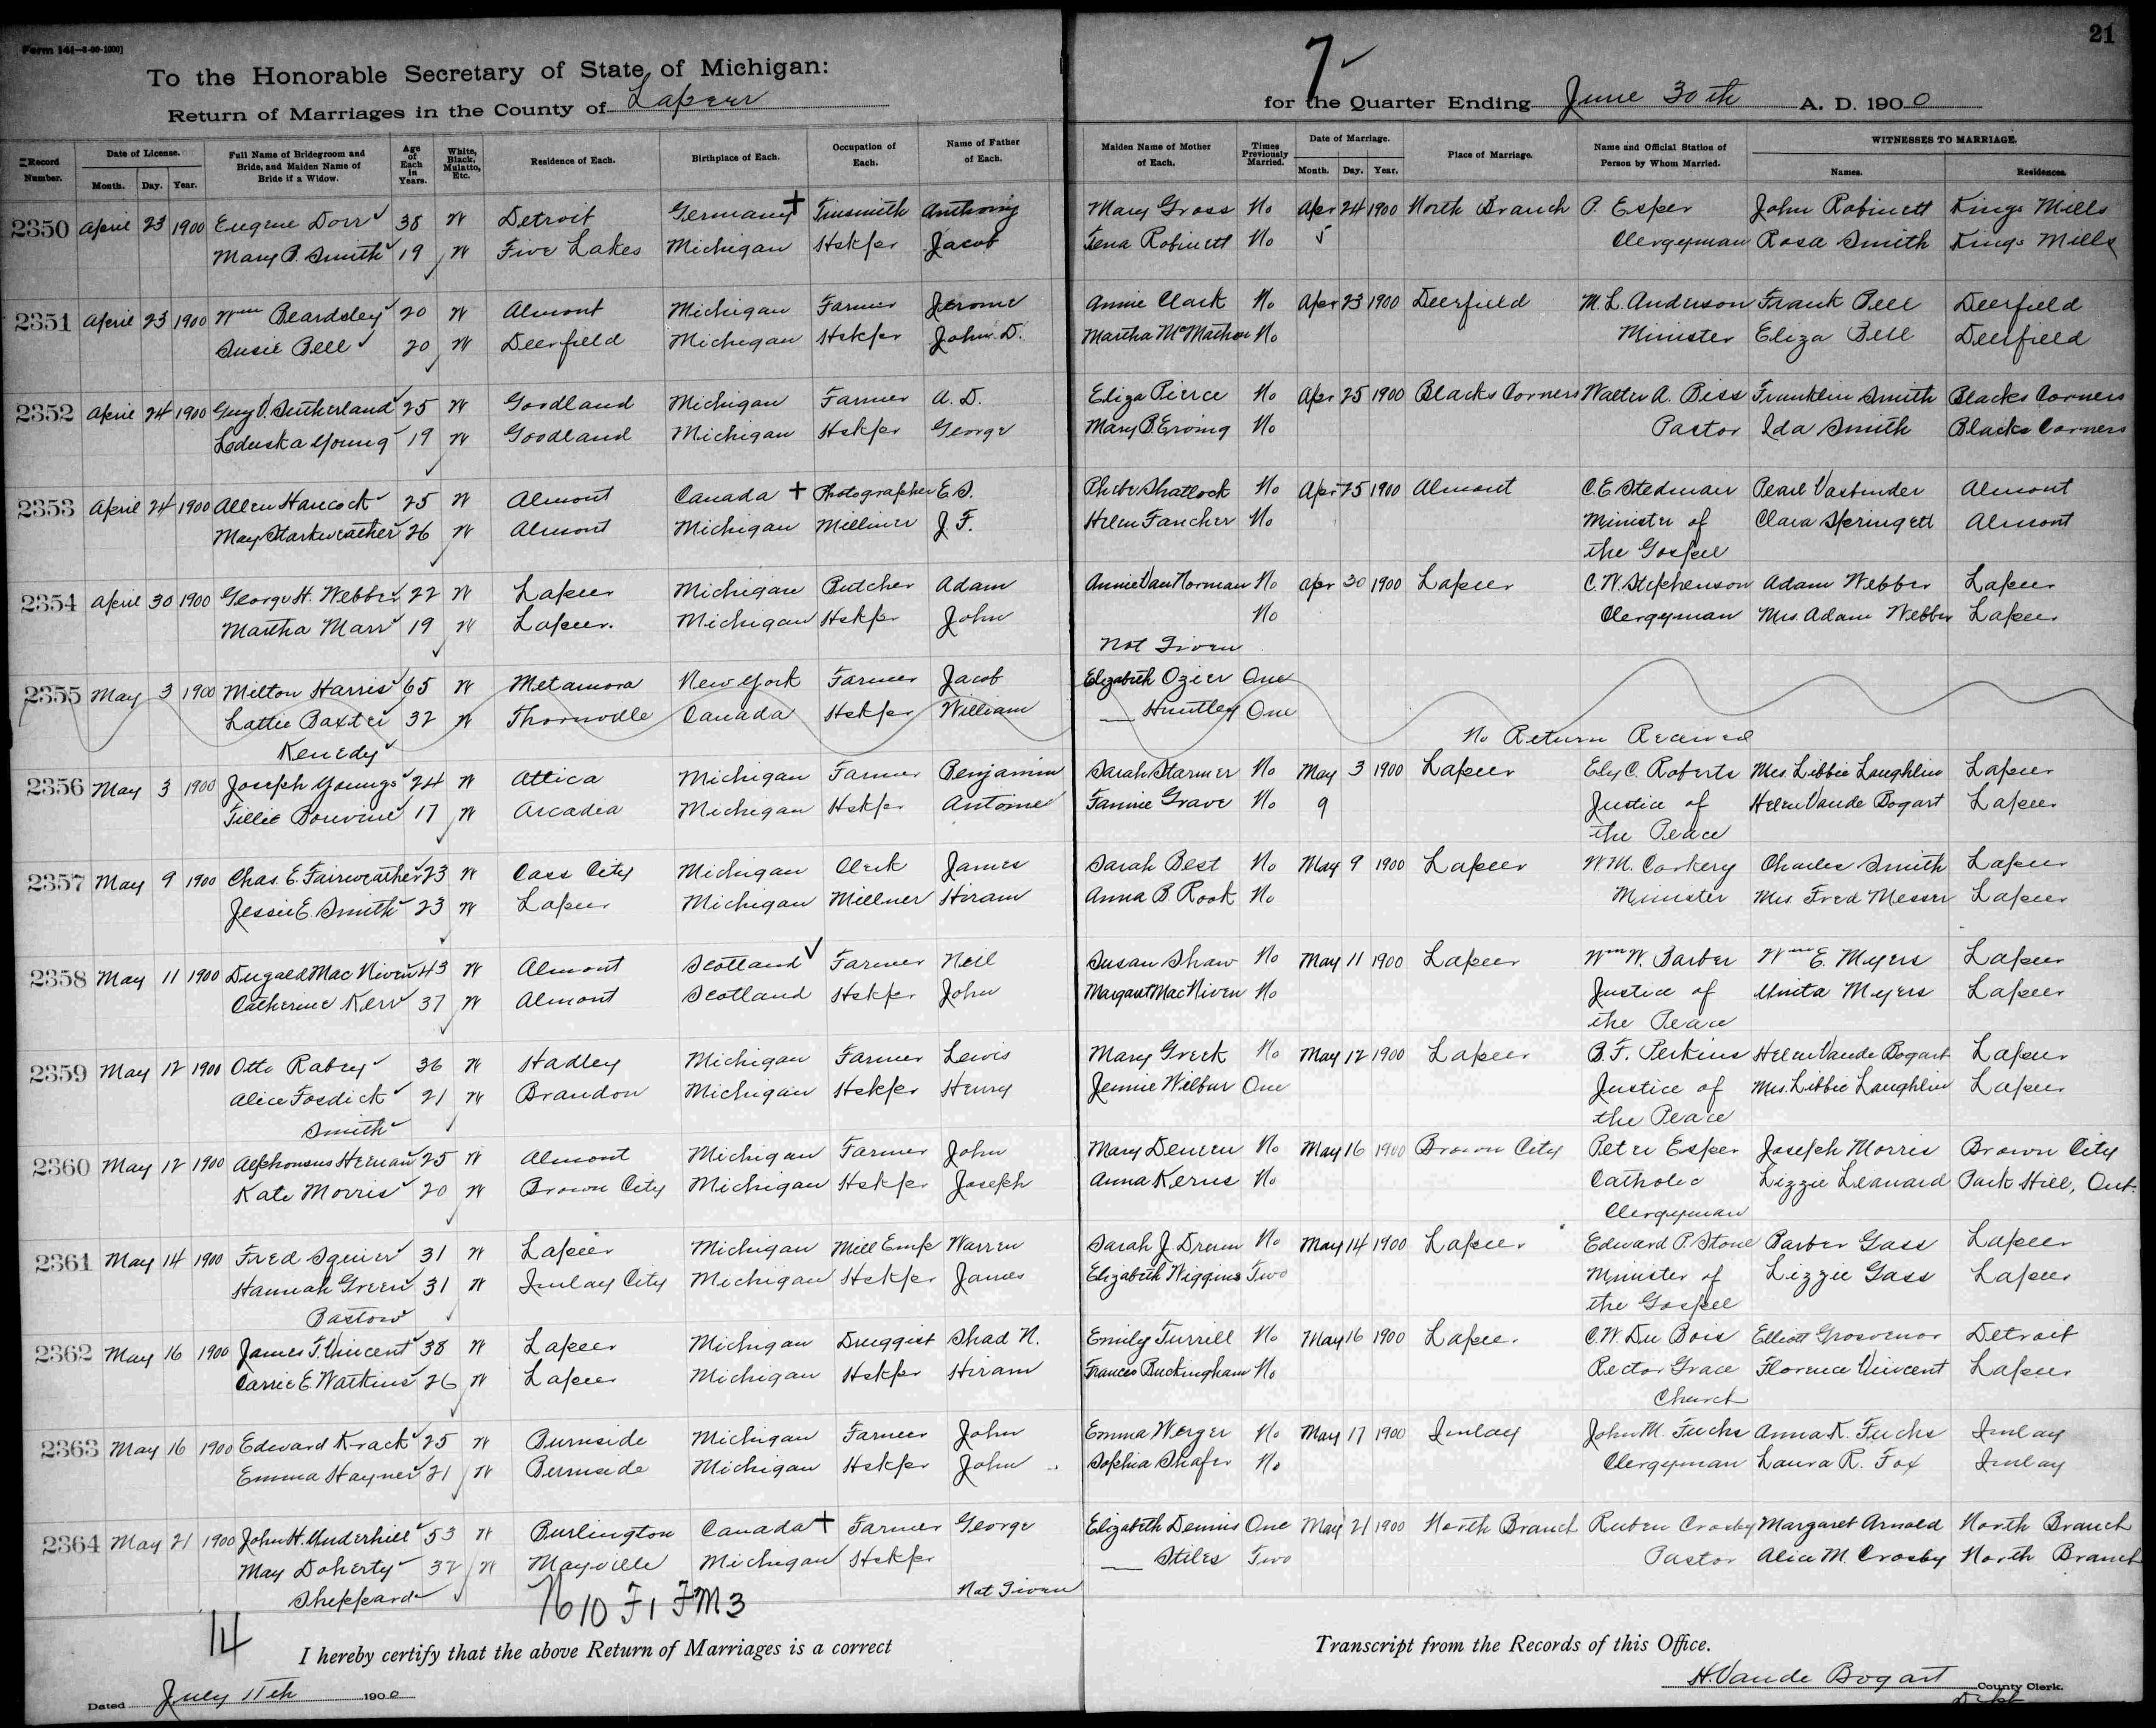 21
Form 141—8-99-1000]
7
To the Honorable Secretary of State of Michigan:
Return of Marriages in the County of Lapeer for the Quarter Ending June 30th A. D. 1900
Record Number. Date of License. Month. Day. Year. Full Name of Bridegroom and Bride, and Maiden Name of Bride if a Widow. Age of Each in Years. White, Black, Mulatto, Etc. Residence of Each. Birthplace of Each. Occupation of Each. Name of Father of Each. Maiden Name of Mother of Each. Times Previously Married. Date of Marriage. Month. Day. Year. Place of Marriage. Name and Official Station of Person by Whom Married. WITNESSES TO MARRIAGE. Names. Residences.
2350 April 23 1900 Eugene Dorr 38 W Detroit Germany + Tinsmith Anthony Mary Gross No Apr 24 1900 North Branch P. Esper John Robinett Kings Mills
Mary B. Smith 19 W Five Lakes Michigan Hskpr Jacob Tena Robinett No 5 Clergyman Rosa Smith Kings Mills
2351 April 23 1900 Wm Beardsley 20 W Almont Michigan Farmer Jerome Annie Clark No Apr 23 1900 Deerfield M. L. Anderson Frank Bell Deerfield
Susie Bell 20 W Deerfield Michigan Hskpr John D. Martha McMachon No Minister Eliza Bell Deerfield
2352 April 24 1900 Guy V. Sutherland 25 W Goodland Michigan Farmer A. D. Eliza Pierce No Apr 25 1900 Blacks Corners Walter A. Biss Franklin Smith Blacks Corners
Loduska Young 19 W Goodland Michigan Hskpr George Mary B. Erving No Pastor Ida Smith Blacks Corners
2353 April 24 1900 Allen Hancock 25 W Almont Canada + Photographer E. S. Phebe Shattock No Apr 25 1900 Almont C. E. Stedman Pearl Vasbinder Almont
May Starkweather 26 W Almont Michigan Milliner J. F. Helen Fancher No Minister of Clara Springett Almont
the Gospel
2354 April 30 1900 George H. Webber 22 W Lapeer Michigan Butcher Adam Annie VanNorman No Apr 30 1900 Lapeer C. W. Stephenson Adam Webber Lapeer
Martha Marr 19 W Lapeer. Michigan Hskpr John No Clergyman Mrs. Adam Webber Lapeer
Not Given
2355 May 3 1900 Milton Harris 65 W Metamora New York Farmer Jacob Elizabeth Ozier One
Lattie Baxter 32 W Thornville Canada Hskpr William — Huntley One
Kenedy No Return Received
2356 May 3 1900 Joseph Youngs 24 W Attica Michigan Farmer Benjamin Sarah Starmer No May 3 1900 Lapeer Ely C. Roberts Mrs. Libbie Laughlin Lapeer
Tillie Bouvine 17 W Arcadia Michigan Hskpr Antoine Fannie Grave No 9 Justice of Helen Vande Bogart Lapeer
the Peace
2357 May 9 1900 Chas. E. Fairweather 23 W Cass City Michigan Clerk James Sarah Best No May 9 1900 Lapeer W. M. Corkery Charles Smith Lapeer
Jessie E. Smith 23 W Lapeer Michigan Millner Hiram Anna B. Rook No Minister Mrs Fred Messer Lapeer
2358 May 11 1900 Dugald Mac Niven 43 W Almont Scotland Farmer Neil Susan Shaw No May 11 1900 Lapeer Wm W. Barber Wm E. Myers Lapeer
Catherine Kerr 37 W Almont Scotland Hskpr John Margaret MacNiven No Justice of Unita Myers Lapeer
the Peace
2359 May 12 1900 Otto Rabey 36 W Hadley Michigan Farmer Lewis Mary Greek No May 12 1900 Lapeer B. F. Perkins Helen Vande Bogart Lapeer
Alice Fosdick 21 W Brandon Michigan Hskpr Henry Jennie Wilbur One Justice of Mrs. Libbie Laughlin Lapeer
Smith the Peace
2360 May 12 1900 Alphonsus Heenan 25 W Almont Michigan Farmer John Mary Deneen No May 16 1900 Brown City Peter Esper Joseph Morris Brown City
Kate Morris 20 W Brown City Michigan Hskpr Joseph Anna Kerns No Catholic Lizzie Leanard Park Hill, Ont.
Clergyman
2361 May 14 1900 Fred Squier 31 W Lapeer Michigan Mill Emp Warren Sarah J. Drum No May 14 1900 Lapeer Edward P. Stone Barber Gass Lapeer
Hannah Green 31 W Imlay City Michigan Hskpr James Elizabeth Wiggins Two Minister of Lizzie Gass Lapeer
Bastow the Gospel
2362 May 16 1900 James T. Vincent 38 W Lapeer Michigan Druggist Shad N. Emily Turrill No May 16 1900 Lapeer. C. W. Du Bois Elliott Grosvenor Detroit
Carrie E. Watkins 26 W Lapeer Michigan Hskpr Hiram Frances Buckingham No Rector Grace Florence Vincent Lapeer
Church
2363 May 16 1900 Edward Krack 25 W Burnside Michigan Farmer John Emma Werger No May 17 1900 Imlay John M. Fuchs Anna K. Fuchs Imlay
Emma Hayner 21 W Burnside Michigan Hskpr John Sophia Shafer No Clergyman Laura R. Fox Imlay
2364 May 21 1900 John H. Underhill 53 W Burlington Canada + Farmer George Elizabeth Dennis One May 21 1900 North Branch Ruben Crosby Margaret Arnold North Branch
May Doherty 32 W Mayville Michigan Hskpr — Stiles Two Pastor Alice M. Crosby North Branch
Sheppard Not Given
14 N 10 F1 FM3
I hereby certify that the above Return of Marriages is a correct Transcript from the Records of this Office.
Dated July 11th 1900 H. Vande Bogart County Clerk.
Dept